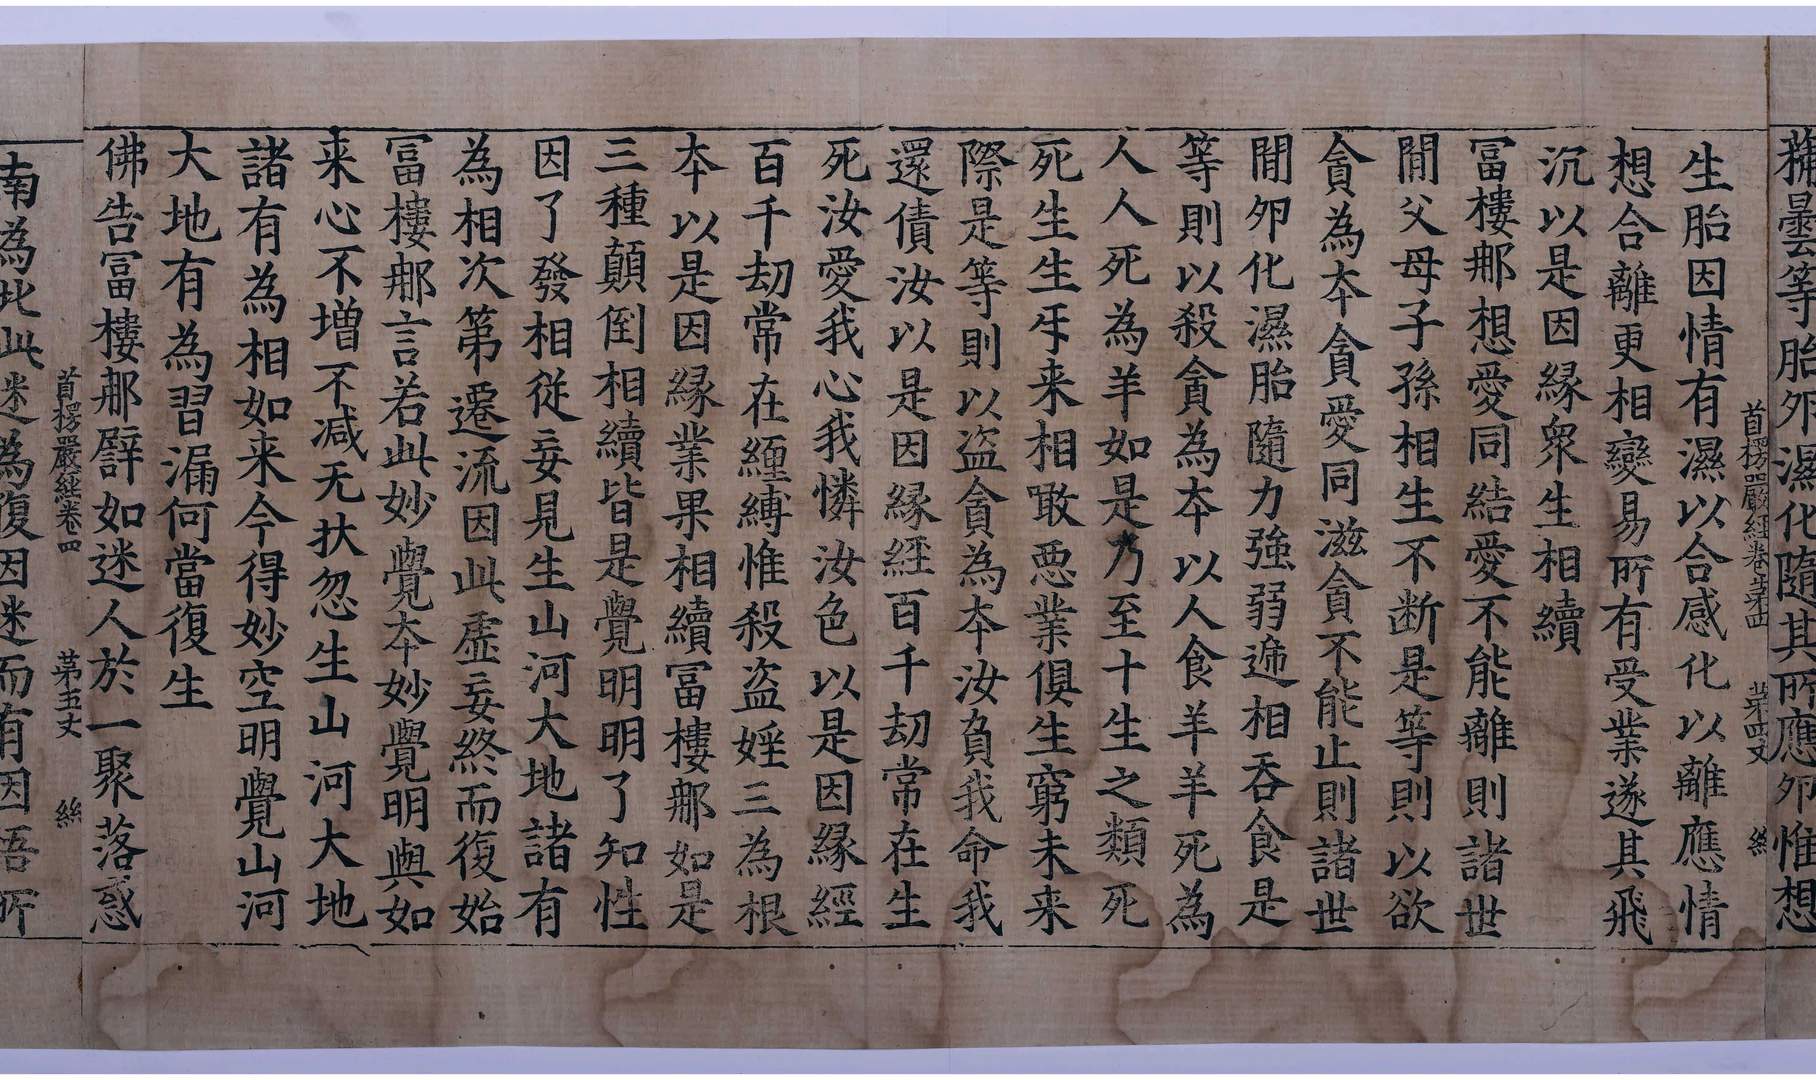 蒱曇等胎卵濕化隨其所應卵惟想
首楞嚴經卷第四 第四丈 絲
生胎因情有濕以合感化以離應情
想合離更相變易所有受業遂其飛
沉以是因緣衆生相續
冨樓郍想愛同結愛不能離則諸世
閒父母子孫相生不断是等則以欲
貪為夲貪愛同滋貪不能止則諸世
閒卵化濕胎隨力強弱遞相吞食是
等則以殺貪為夲以人食羊羊死為
人人死為羊如是乃至十生之類死
死生生𤓰来相噉悪業俱生窮未来
際是等則以盗貪為夲汝負我命我
還債汝以是因緣經百千劫常在生
死汝愛我心我憐汝色以是因緣經
百千劫常在纏縛惟殺盗婬三為根
夲以是因緣業果相續冨樓郍如是
三種顛倒相續皆是覺明明了知性
因了發相從妄見生山河大地諸有
為相次第遷流因此虛妄終而復始
冨樓郍言若此妙覺夲妙覺明與如
来心不增不减无扶忽生山河大地
諸有為相如来今得妙空明覺山河
大地有為習漏何當復生
佛告冨樓郍譬如迷人於一聚落惑
首楞嚴經卷四 苐五丈 絲
南為北此迷為復因迷而有因悟所